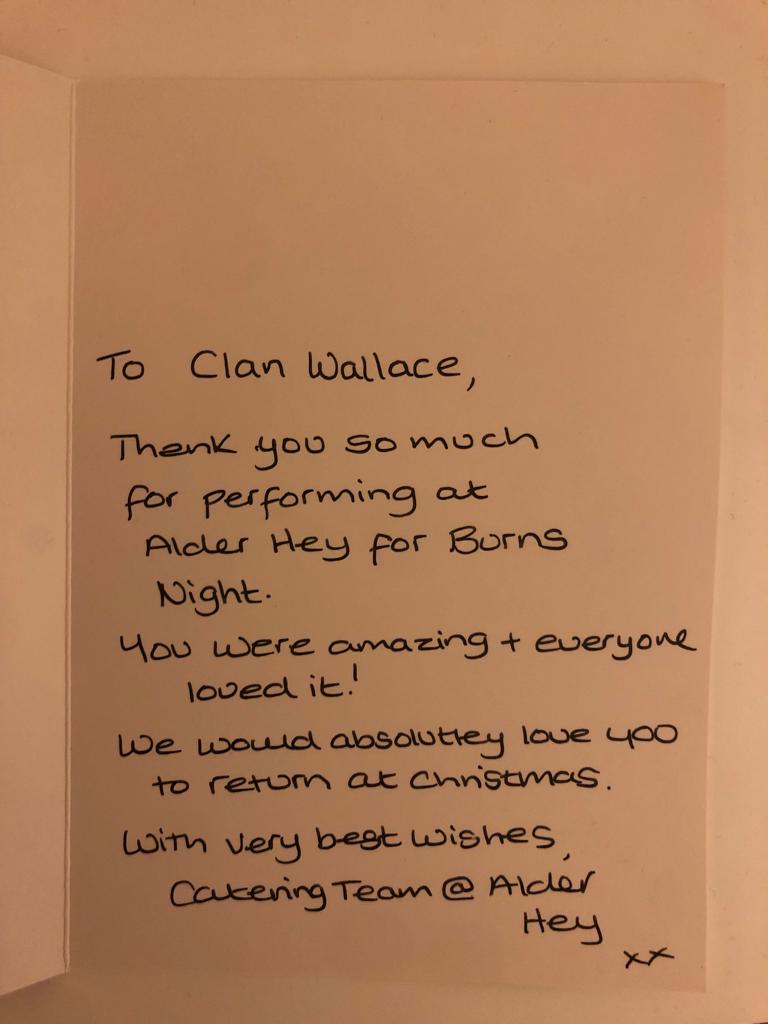 To Clan Wallace,
Thank you so much
for performing at
Alder Hey for Burns
Night.
You were amazing + everyone
loved it!
We would absolutley love you
to return at Christmas.
With very best wishes,
Catering Team @ Alder
Hey
xx